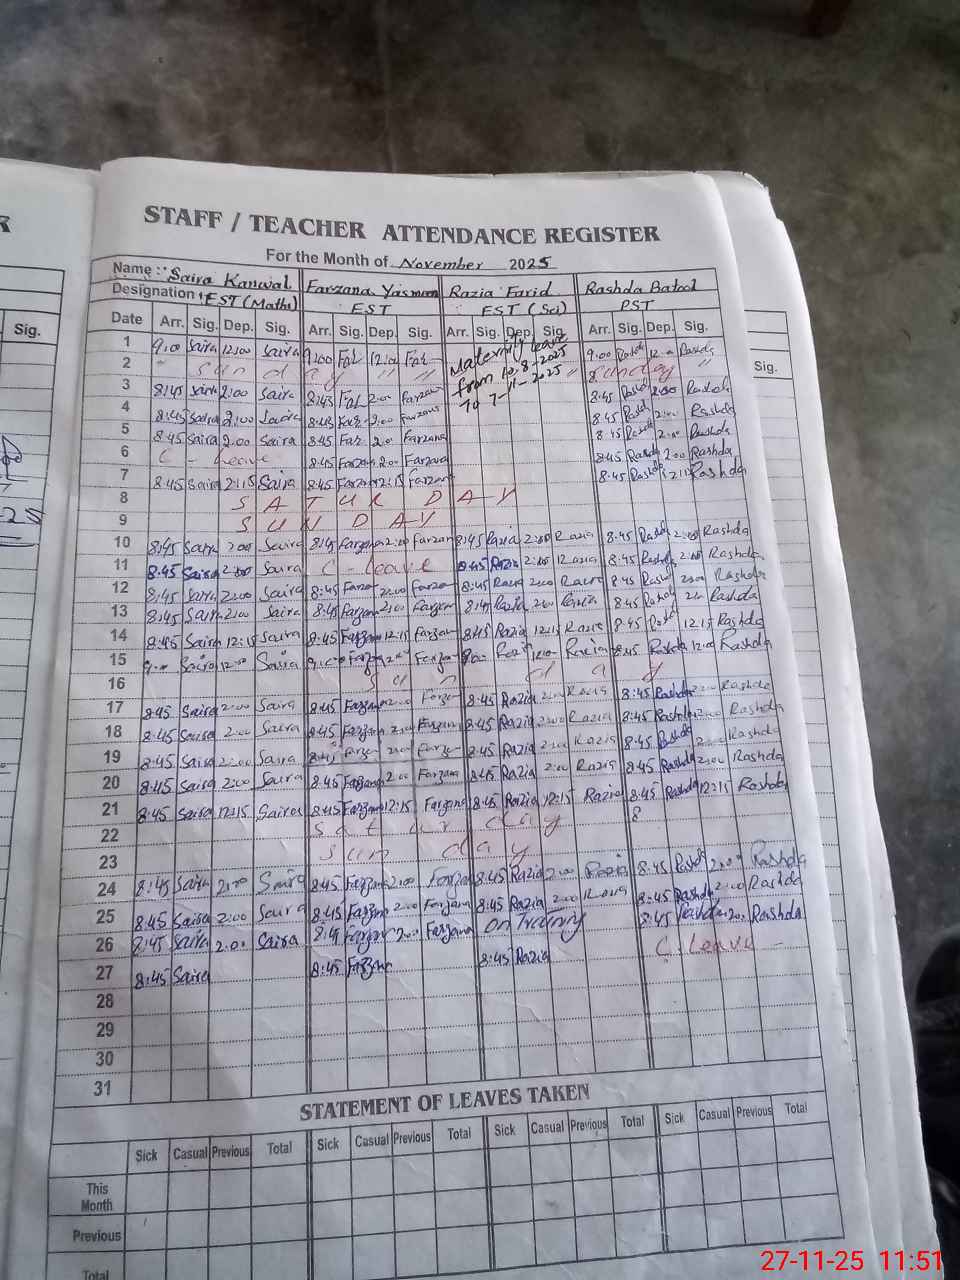 STAFF / TEACHER ATTENDANCE REGISTER
For the Month of November 2025
Name : Saira Kanwal Farzana Yasmeen Razia Farid Rashda Batool
Designation : EST (Maths) EST EST (Sci) PST
Date Arr. Sig. Dep. Sig. Arr. Sig. Dep. Sig. Arr. Sig. Dep. Sig. Arr. Sig. Dep. Sig.
Sig.
Sig.
Maternity leave
from 10-8-2025
To 7-11-2025
1 9:00 Saira 12:00 Saira 9:00 Far 12:00 Far 9:00 Rashda
2 Sunday Sunday
3 8:45 Saira 2:00 Saira 8:45 Far 2:00 Farzana 8:45 2:00 Rashda
4 8:45 Saira 2:00 Saira 8:45 Far 2:00 Farzana 8:45 2:00 Rashda
5 8:45 Saira 2:00 Saira 8:45 Far 2:00 Farzana 8:45 2:00 Rashda
6 C - Leave 8:45 Farzana 2:00 Farzana 8:45 Rashda 2:00 Rashda
7 8:45 Saira 2:15 Saira 8:45 Farzana 12:15 Farzana 8:45 Rashda 12:15 Rashda
8 SATURDAY
9 SUNDAY
10 8:45 Saira 2:00 Saira 8:45 Farzana 2:00 Farzana 8:45 Razia 2:00 Razia 8:45 Rashda 2:00 Rashda
11 8:45 Saira 2:00 Saira C - Leave 8:45 Razia 2:00 Razia 8:45 Rashda 2:00 Rashda
12 8:45 Saira 2:00 Saira 8:45 Farzana 2:00 Farzana 8:45 Razia 2:00 Razia 8:45 Rashda 2:00 Rashda
13 8:45 Saira 2:00 Saira 8:45 Farzana 2:00 Farzana 8:45 Razia 2:00 Razia 8:45 Rashda 2:00 Rashda
14 8:45 Saira 12:15 Saira 8:45 Farzana 12:15 Farzana 8:45 Razia 12:15 Razia 8:45 Rashda 12:15 Rashda
15 9:00 Saira 12:00 Saira Farzana Farzana Razia 12:00 Razia 8:45 Rashda 12:00 Rashda
16 Sunday
17 8:45 Saira 2:00 Saira 8:45 Farzana 2:00 Farzana 8:45 Razia 2:00 Razia 8:45 Rashda 2:00 Rashda
18 8:45 Saira 2:00 Saira 8:45 Farzana 2:00 Farzana 8:45 Razia 2:00 Razia 8:45 Rashda 2:00 Rashda
19 8:45 Saira 2:00 Saira 8:45 Farzana 2:00 Farzana 8:45 Razia 2:00 Razia 8:45 Rashda 2:00 Rashda
20 8:45 Saira 2:00 Saira 8:45 Farzana 2:00 Farzana 8:45 Razia 2:00 Razia 8:45 Rashda 2:00 Rashda
21 8:45 Saira 12:15 Saira 8:45 Farzana 12:15 Farzana 8:45 Razia 12:15 Razia 8:45 Rashda 12:15 Rashda
22 Saturday 8
23 Sunday
24 8:45 Saira 2:00 Saira 8:45 Farzana 2:00 Farzana 8:45 Razia 2:00 Razia 8:45 Rashda 2:00 Rashda
25 8:45 Saira 2:00 Saira 8:45 Farzana 2:00 Farzana 8:45 Razia 2:00 Razia 8:45 Rashda 2:00 Rashda
26 8:45 Saira 2:00 Saira 8:45 Farzana 2:00 Farzana on Training 8:45 Rashda 2:00 Rashda
27 8:45 Saira 8:45 Farzana 8:45 Razia C. Leave -
28
29
30
31
STATEMENT OF LEAVES TAKEN
Sick Casual Previous Total Sick Casual Previous Total Sick Casual Previous Total Sick Casual Previous Total
This
Month
Previous
Total
27-11-25 11:51